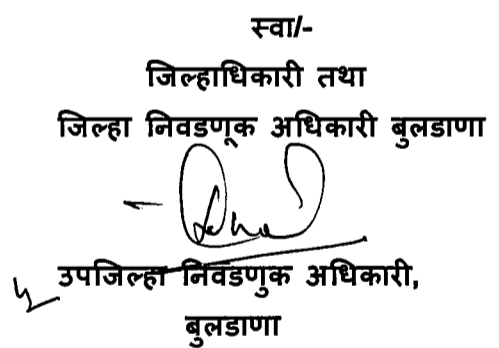 स्वा/-
जिल्हाधिकारी तथा
जिल्हा निवडणूक अधिकारी बुलडाणा
उपजिल्हा निवडणुक अधिकारी,
बुलडाणा